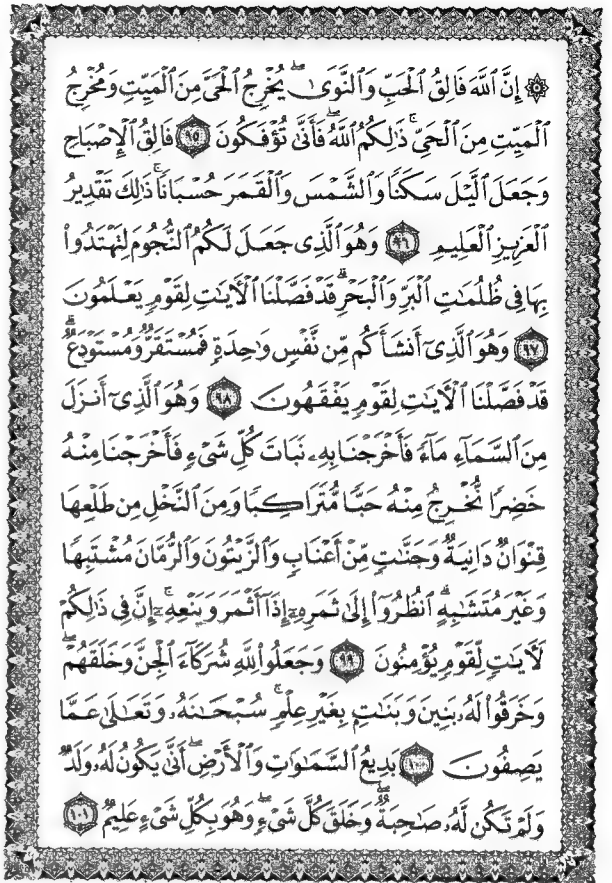 ۞ إِنَّ اللَّهَ فَالِقُ الْحَبِّ وَالنَّوَىٰ ۖ يُخْرِجُ الْحَيَّ مِنَ الْمَيِّتِ وَمُخْرِجُ
الْمَيِّتِ مِنَ الْحَيِّ ۚ ذَٰلِكُمُ اللَّهُ ۖ فَأَنَّىٰ تُؤْفَكُونَ ٩٥ فَالِقُ الْإِصْبَاحِ
وَجَعَلَ اللَّيْلَ سَكَنًا وَالشَّمْسَ وَالْقَمَرَ حُسْبَانًا ۚ ذَٰلِكَ تَقْدِيرُ
الْعَزِيزِ الْعَلِيمِ ٩٦ وَهُوَ الَّذِي جَعَلَ لَكُمُ النُّجُومَ لِتَهْتَدُوا
بِهَا فِي ظُلُمَاتِ الْبَرِّ وَالْبَحْرِ ۗ قَدْ فَصَّلْنَا الْآيَاتِ لِقَوْمٍ يَعْلَمُونَ
٩٧ وَهُوَ الَّذِي أَنشَأَكُم مِّن نَّفْسٍ وَاحِدَةٍ فَمُسْتَقَرٌّ وَمُسْتَوْدَعٌ ۗ
قَدْ فَصَّلْنَا الْآيَاتِ لِقَوْمٍ يَفْقَهُونَ ٩٨ وَهُوَ الَّذِي أَنزَلَ
مِنَ السَّمَاءِ مَاءً فَأَخْرَجْنَا بِهِ نَبَاتَ كُلِّ شَيْءٍ فَأَخْرَجْنَا مِنْهُ
خَضِرًا نُّخْرِجُ مِنْهُ حَبًّا مُّتَرَاكِبًا وَمِنَ النَّخْلِ مِن طَلْعِهَا
قِنْوَانٌ دَانِيَةٌ وَجَنَّاتٍ مِّنْ أَعْنَابٍ وَالزَّيْتُونَ وَالرُّمَّانَ مُشْتَبِهًا
وَغَيْرَ مُتَشَابِهٍ ۗ انظُرُوا إِلَىٰ ثَمَرِهِ إِذَا أَثْمَرَ وَيَنْعِهِ ۚ إِنَّ فِي ذَٰلِكُمْ
لَآيَاتٍ لِّقَوْمٍ يُؤْمِنُونَ ٩٩ وَجَعَلُوا لِلَّهِ شُرَكَاءَ الْجِنَّ وَخَلَقَهُمْ ۖ
وَخَرَقُوا لَهُ بَنِينَ وَبَنَاتٍ بِغَيْرِ عِلْمٍ ۚ سُبْحَانَهُ وَتَعَالَىٰ عَمَّا
يَصِفُونَ ١٠٠ بَدِيعُ السَّمَاوَاتِ وَالْأَرْضِ ۖ أَنَّىٰ يَكُونُ لَهُ وَلَدٌ
وَلَمْ تَكُن لَّهُ صَاحِبَةٌ ۖ وَخَلَقَ كُلَّ شَيْءٍ ۖ وَهُوَ بِكُلِّ شَيْءٍ عَلِيمٌ ١٠١